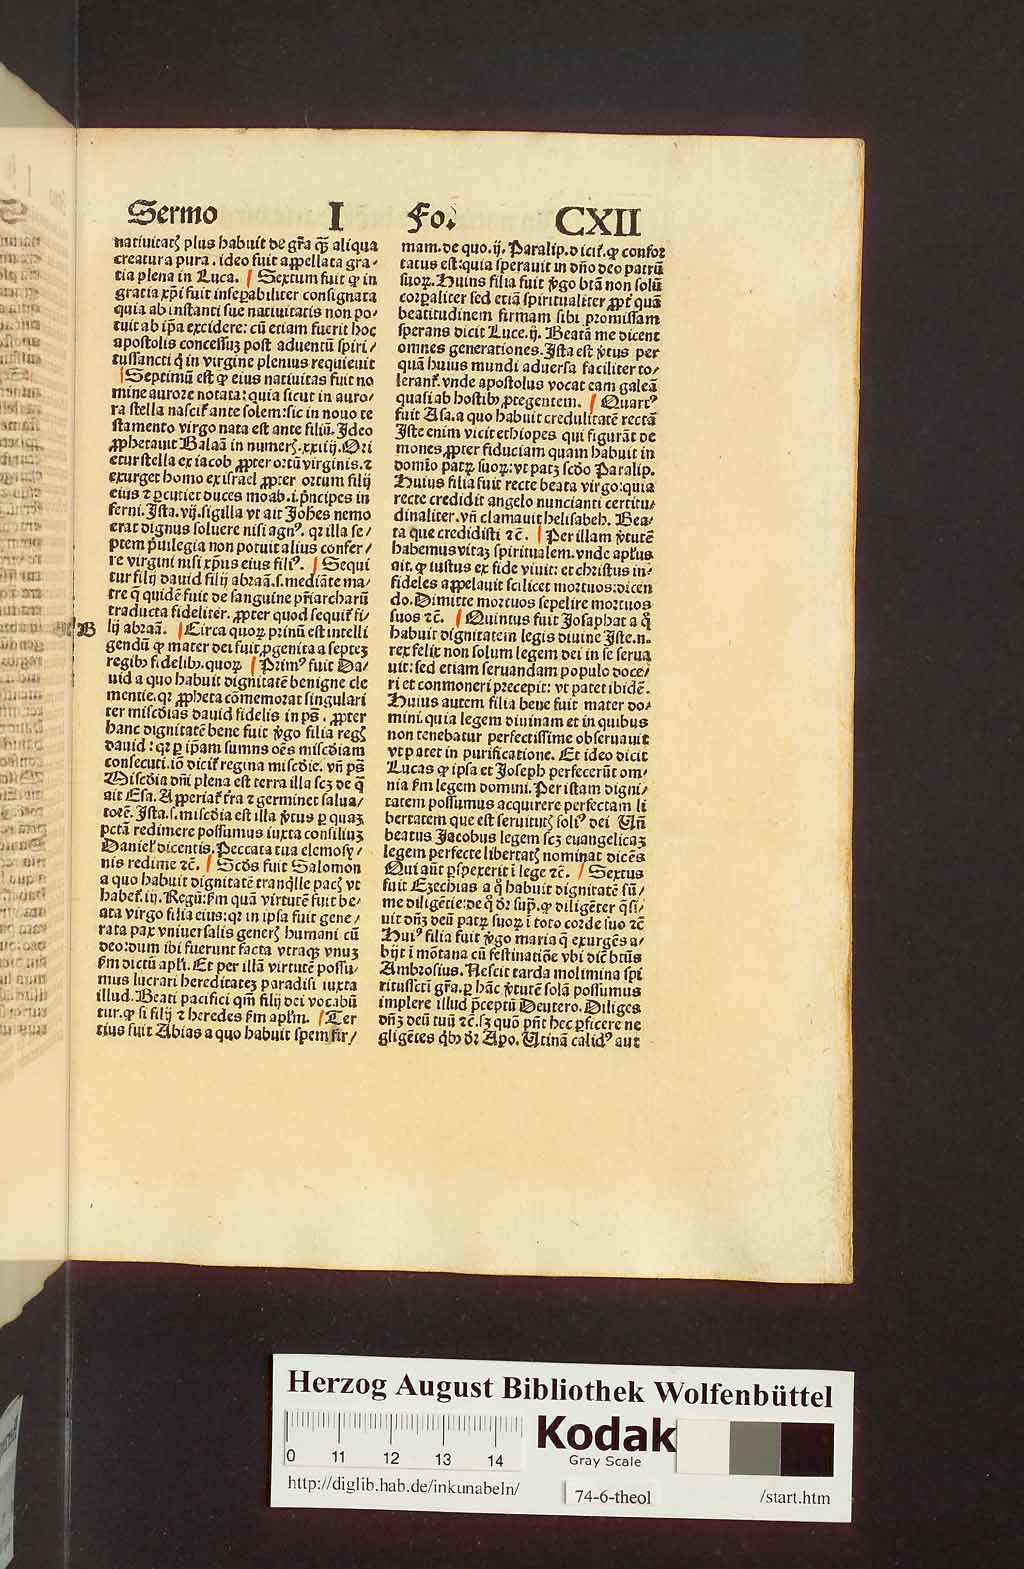 Sermo I Fo. CXII
natiuitatꝭ plus habuit de gr̃a qꝫ̃ aliqua
creatura pura. ideo fuit appellata gra-
tia plena in Luca. Sextum fuit ꝙ in
gratia xp̃i fuit inseꝑabiliter consignata
quia ab instanti sue natiuitatis non po-
tuit ab ip̃a excidere: cũ etiam fuerit hoc
apostolis concessuꝫ post aduentũ spiri/
tussancti q̃ in virgine plenius requieuit
Septimũ est ꝙ eius natiuitas fuit no
mine aurore notata: quia sicut in auro/
ra stella nascit᷑ ante solem: sic in nouo te
stamento virgo nata est ante filiũ. Ideo
ꝓphetauit Balaã in numerꝭ. xxiiij. Ori
etur stella ex iacob ꝓpter ortũ virginis. ⁊
exurget homo ex israel ꝓpter ortum filij
eius ⁊ ꝑcutiet duces moab. i. p̃ncipes in
ferni. Ista. vij. sigilla vt ait Joh̃es nemo
erat dignus soluere nisi agnꝰ. qꝛ illa se/
ptem p̃uilegia non potuit alius confer/
re virgini nisi xp̃us eius filiꝰ. Sequi
tur filij dauid filij abraã. s. mediãte ma/
tre q̃ quidẽ fuit de sanguine pr̃iarcharũ
traducta fideliter. ꝓpter quod sequit᷑ fi/
B lij abraã. Circa quoꝝ primũ est intelli
gendũ ꝙ mater dei fuit ꝓgenita a septeꝫ
regibꝫ fidelibꝫ. quoꝝ Primꝰ fuit Da/
uid a quo habuit dignitatẽ benigne cle
mentie. qꝛ ꝓpheta cõmemorat singulari
ter miscd̃ias dauid fidelis in ps̃. ꝓpter
hanc dignitatẽ bene fuit v̓go filia regꝭ
dauid: qꝛ ꝑ ip̃am sumus oẽs miscd̃iam
consecuti. iõ dicit᷑ regina miscd̃ie. vñ ps̃
Miscd̃ia dñi plena est terra illa scꝫ de q̃
ait Esa. Apperiat᷑ t̃ra ⁊ germinet salua/
torẽ. Ista. s. miscd̃ia est illa v̓tus ꝑ quaꝫ
pctã redimere possumus iuxta consiliuꝫ
Daniel᷑ dicentis. Peccata tua elemosy/
nis redime ⁊c̃. Scd̃s fuit Salomon
a quo habuit dignitatẽ tranq̃lle pacꝭ vt
habet᷑. iij. Regũ: ẜm quã virtutẽ fuit be/
ata virgo filia eius: qꝛ in ipsa fuit gene/
rata pax vniuersalis generꝭ humani cũ
deo: dum ibi fuerunt facta vtraqꝫ vnuꝫ
ẜm dictũ apl̃i. Et per illã virtutẽ possu-
mus lucrari hereditateꝫ paradisi iuxta
illud. Beati pacifici qm̃ filij dei vocabũ
tur. ꝙ si filij ⁊ heredes ẜm apl̃m. Ter
tius fuit Abias a quo habuit spem fir/
mam. de quo. ij. Paralip. dicit᷑. ꝙ confor
tatus est: quia sperauit in dño deo patrũ
suoꝝ. Huius filia fuit v̓go btã non solũ
corꝑaliter sed etiã spiritualiter ꝓpt᷑ quã
beatitudinem firmam sibi promissam
sperans dicit Luce. ij. Beatã me dicent
omnes generationes. Ista est v̓tus per
quã huius mundi aduersa faciliter to/
lerant᷑. vnde apostolus vocat eam galeã
quasi ab hostibꝫ ꝓtegentem. Quartꝰ
fuit Asa. a quo habuit credulitatẽ rectã
Iste enim vicit ethiopes qui figurãt de
mones ꝓpter fiduciam quam habuit in
domĩo patꝝ suoꝝ: vt patꝫ scd̃o Paralip.
Huius filia fuit recte beata virgo: quia
recte credidit angelo nuncianti certitu/
dinaliter. vñ clamauit helisabeh. Bea/
ta que credidisti ⁊c̃. Per illam v̓tutẽ
habemus vitaꝫ spiritualem. vnde apl̃us
ait. ꝙ iustus ex fide viuit: et christus in-
fideles appelauit scilicet mortuos: dicen
do. Dimitte mortuos sepelire mortuos
suos ⁊c̃. Quintus fuit Josaphat a q̊
habuit dignitatein legis diuine Iste. n.
rex felix non solum legem dei in se serua
uit: sed etiam seruandam populo doce/
ri et conmoneri precepit: vt patet ibidẽ.
Huius autem filia bene fuit mater do/
mini. quia legem diuinam et in quibus
non tenebatur perfectissime obseruauit
vt patet in purificatione. Et ideo dicit
Lucas ꝙ ipsa et Joseph perfecerũt om/
nia ẜm legem domini. Per istam digni/
tatem possumus acquirere perfectam li
bertatem que est seruitutꝭ soliꝰ dei Uñ
beatus Jacobus legem scꝫ euangelicaꝫ
legem perfecte libertatꝭ nominat dicẽs
Qui aũt ꝑspexerit ĩ lege ⁊c̃. Sextus
fuit Ezechias a q̊ habuit dignitatẽ sũ/
me diligẽtie: de q̊ dr̃ sup̃. ꝙ diligẽter q̃si/
uit dñꝫ deũ patꝝ suoꝝ ĩ toto corde suo ⁊c̃
Huiꝰ filia fuit v̓go maria q̃ exurgẽs a/
bijt ĩ mõtana cũ festinatiõe vbi dic̃ btũs
Ambrosius. Nescit tarda molimina spi
ritussctĩ gr̃a. ꝑ hãc v̓tutẽ solã possumus
implere illud p̃ceptũ Deutero. Diliges
dñꝫ deũ tuũ ⁊c̃. sꝫ quõ pñt hec ꝑficere ne
gligẽtes qͥbꝫ dr̃ Apo. Utinã calidꝰ aut
Herzog August Bibliothek Wolfenbüttel
0 11 12 13 14
Kodak
Gray Scale
http://diglib.hab.de/inkunabeln/
74-6-theol
/start.htm